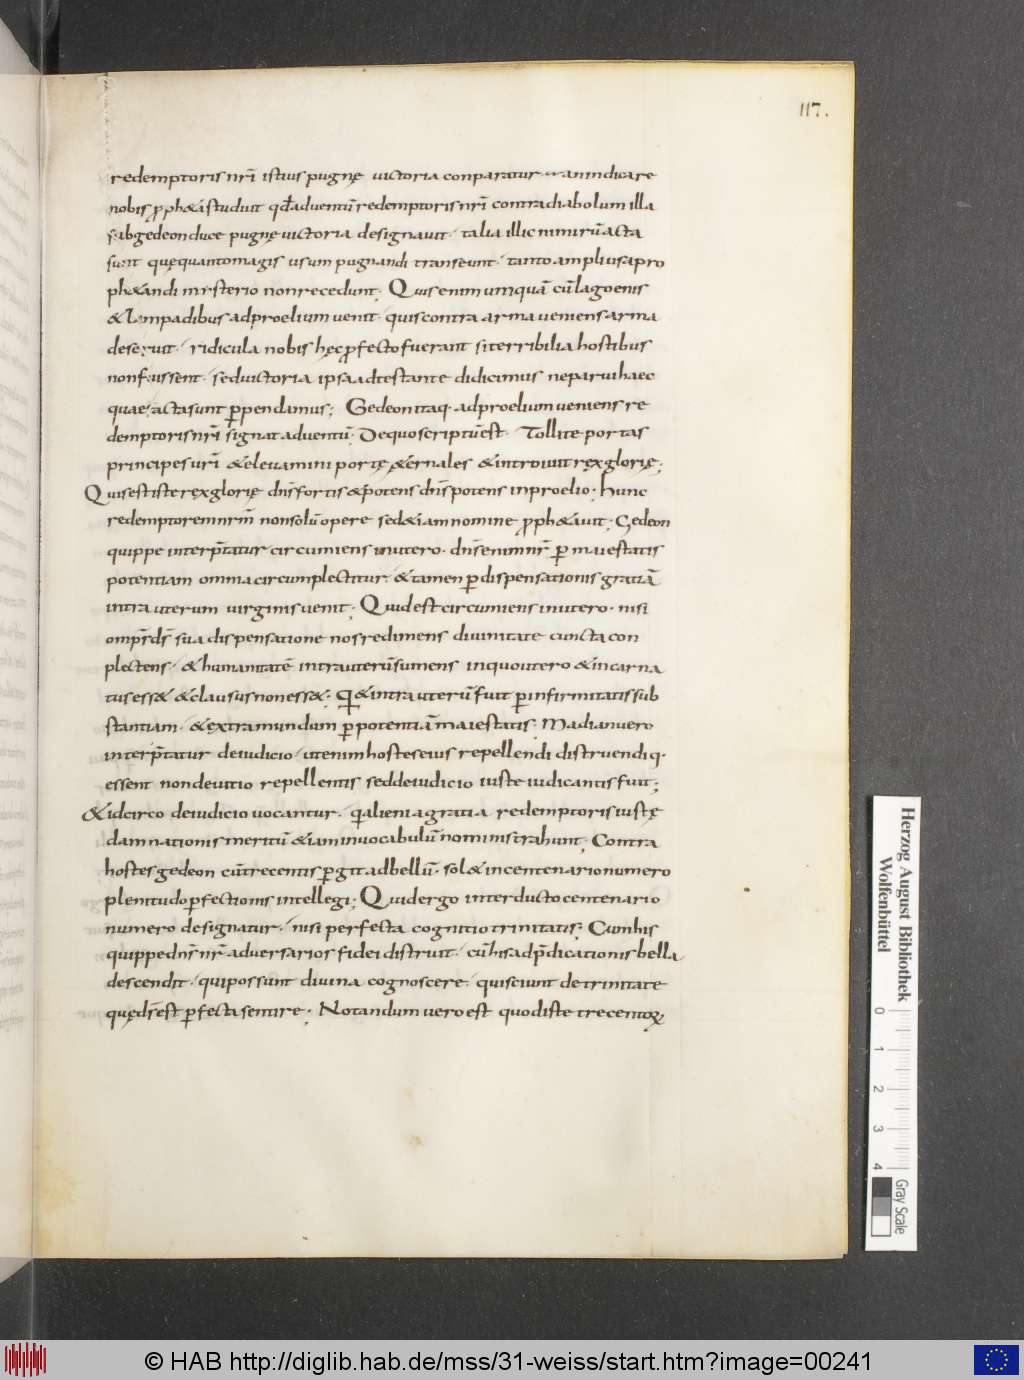 117.
redemptoris nrī istius pugnę victoria conparatur anindicare
nobis ꝓph&a studuit qđ adventū redemptoris nrī contra diabolum illa
sub gedeon duce pugnę victoria designavit· talia illic nimirū acta
sunt quę quanto magis usum pugnandi transeunt· tanto amplius a pro
ph&andi mysterio non recedunt; Quis enim umquā cū lagoenis
& lampadibus ad proelium venit· quis contra arma veniens arma
deseruit· ridicula nobis hęc ꝓfecto fuerant si terribilia hostibus
non fuissent· sed victoria ipsa adtestante didicimus ne parvi haec
quae acta sunt ꝑpendamus; Gedeon itaq· ad proelium veniens re
demptoris nrī signat adventū; De quo scriptū est· Tollite portas
principes urī & elevamini portę &ernales & introivit rex glorię;
Quis est iste rex glorię dn̄s fortis & potens dn̄s potens in proelio· hunc
redemptorem nrm̄ non solū opere sed &iam nomine ꝓph&avit; Gedeon
quippe interp̄tatur circumiens in utero· dn̄s enim nr̄ ꝑ maiestatis
potentiam omnia circumplectitur· & tamen ꝑ dispensationis gratiā
intra uterum virginis venit; Quid est circumiens in utero· nisi
omp̄s d̄s sua dispensatione nos redimens divinitate cuncta con
plectens· & humanitatē intra uterū sumens in quo utero & incarna
tus ess& & clausus non ess&; Q & intra uterū fuit ꝑ infirmitatis sub
stantiam· & extra mundum ꝑ potentiā maiestatis; Madian vero
interp̄tatur de iudicio· ut enim hostes eius repellendi distruendiq·
essent non de vitio repellentis sed de iudicio iuste iudicantis fuit;
& idcirco de iudicio vocantur· q alieni a gratia redemptoris iustę
damnationis meritū &iam in vocabulū nominis trahunt; Contra
hostes gedeon cū trecentis ꝑgit ad bellū· sol& in centenario numero
plenitudo ꝑfectionis intellegi; Quid ergo inter ducto centenario
numero designatur· nisi perfecta cognitio trinitatis; Cum his
quippe dn̄s nr̄ adversarios fidei distruit· cū his ad p̄dicationis bella
descendit· qui possunt divina cognoscere· qui sciunt de trinitate
quę d̄s est ꝑfecta sentire; Notandum vero est quod iste trecentoꝝ
Herzog August Bibliothek
Wolfenbüttel
0 1 2 3 4
Gray Scale
© HAB http://diglib.hab.de/mss/31-weiss/start.htm?image=00241